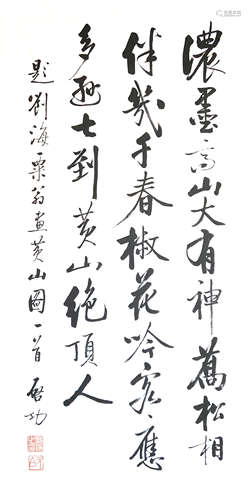 濃墨高山大有神萬松相
伴幾千春椒花吟客應
多遜七到黄山絶頂人
題劉海粟翁畫黄山圖一首 啓功